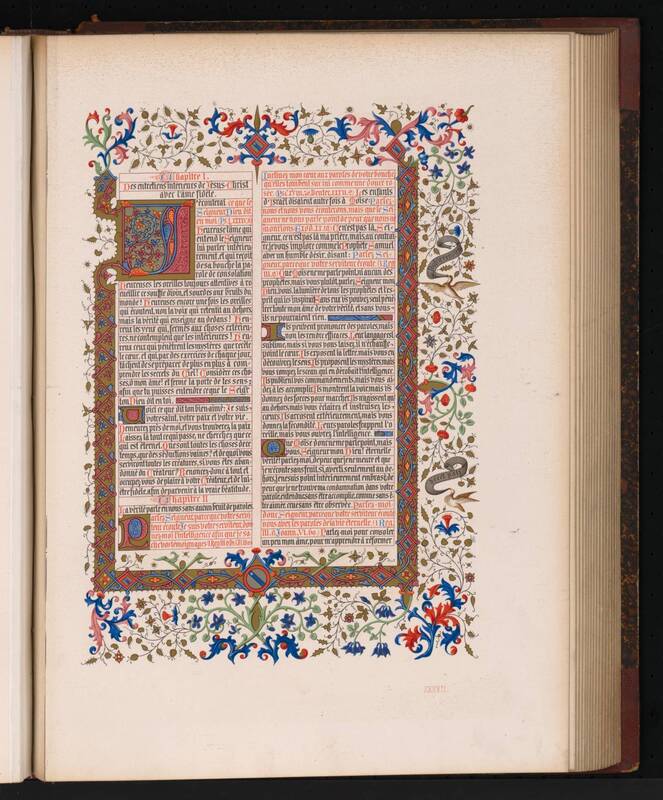 Chapitre I.
Des entretiens interieurs de Jésus-Christ
avec l'âme fidèle.
écouterai ce que le
Seigneur Dieu dit
en moi
Heureuse l'âme qui
entend le Seigneur
lui parler intérieu-
rement, et qui reçoit
de sa bouche la pa-
role de consolation!
Heureuses les oreilles toujours attentives à re-
cueillir ce souffle divin, et sourdes aux bruits du
monde! Heureuses encore une fois les oreilles
qui écoutent, non la voix qui retentit au dehors,
mais la vérité qui enseigne au dedans! Heu-
reux les yeux qui, fermés aux choses extérieu-
res, ne contemplent que les intérieures! Heu-
reux ceux qui pénètrent les mystères que recèle
le cœur, et qui, par des exercices de chaque jour,
tâchent de se préparer de plus en plus à com-
prendre les secrets du Ciel! Considère ces cho-
ses, ô mon âme! et ferme la porte de tes sens,
afin que tu puisses entendre ce que le Seigneur
ton Dieu dit en toi.
Voici ce que dit ton bien-aimé: Je suis
votre salut, votre paix et votre vie.
Demeurez près de moi, et vous trouverez la paix.
Laissez là tout ce qui passe, ne cherchez que ce
qui est éternel. Que sont toutes les choses du
temps, que des séductions vaines? et de quoi vous
serviront toutes les créatures, si vous êtes aban-
donné du Créateur? Renoncez donc à tout, et
occupez-vous de plaire à votre Créateur, et de lui
être fidèle, afin de parvenir à la vraie béatitude.
Chapitre II
La vérité parle en nous sans aucun bruit de paroles.
Parlez, Seigneur, parce que votre serviteur
écoute. Je suis votre serviteur, don-
nez-moi l'intelligence afin que je sa-
che vos témoignages
Inclinez mon cœur aux paroles de votre bouche;
qu'elles tombent sur lui comme une douce ro-
sée. Les enfants
d'Israël disaient autrefois à Moïse: Parlez-
nous et nous vous écouterons; mais que le Sei-
gneur ne nous parle point, de peur que nous ne
mourions. Ce n'est pas là, Sei-
gneur, ce n'est pas là ma prière; mais au contrai-
re je vous implore comme le Prophète Samuel,
avec un humble désir, disant: Parlez, Sei-
gneur, parce que votre serviteur écoute
Que Moïse ne me parle point, ni aucun des
prophètes, mais vous plutôt, parlez, Seigneur mon
Dieu, vous la lumière de tous les prophètes, et l'es-
prit qui les inspirait. Sans eux, vous pouvez seul péné-
trer toute mon âme de votre vérité, et sans vous
ils ne pourraient rien.
Ils peuvent prononcer des paroles, mais
non les rendre efficaces. Leur langage est
sublime, mais si vous vous taisez, il n'échauffe
point le cœur. Ils exposent la lettre, mais vous en
découvrez le sens. Ils proposent les mystères, mais
vous rompez le sceau qui en dérobait l'intelligence.
Ils publient vos commandements, mais vous ai-
dez à les accomplir. Ils montrent la voie, mais vous
donnez des forces pour marcher. Ils n'agissent qu'
au dehors, mais vous éclairez et instruisez les
cœurs. Ils arrosent extérieurement, mais vous
donnez la fécondité. Leurs paroles frappent l'o-
reille, mais vous ouvrez l'intelligence.
Que Moïse donc ne me parle point, mais
vous, Seigneur mon Dieu! éternelle
vérité! parlez-moi, de peur que je ne meure et que
je n'écoute sans fruit, si, averti seulement au de-
hors, je ne suis point intérieurement embrasé; de
peur que je ne trouve ma condamnation dans votre
parole, entendue sans être accomplie, connue sans ê-
tre aimée, crue sans être observée. Parlez-moi
donc, Seigneur, parce que votre serviteur écoute:
vous avez les paroles de la vie éternelle
Parlez-moi pour consoler
un peu mon âme, pour m'apprendre à réformer